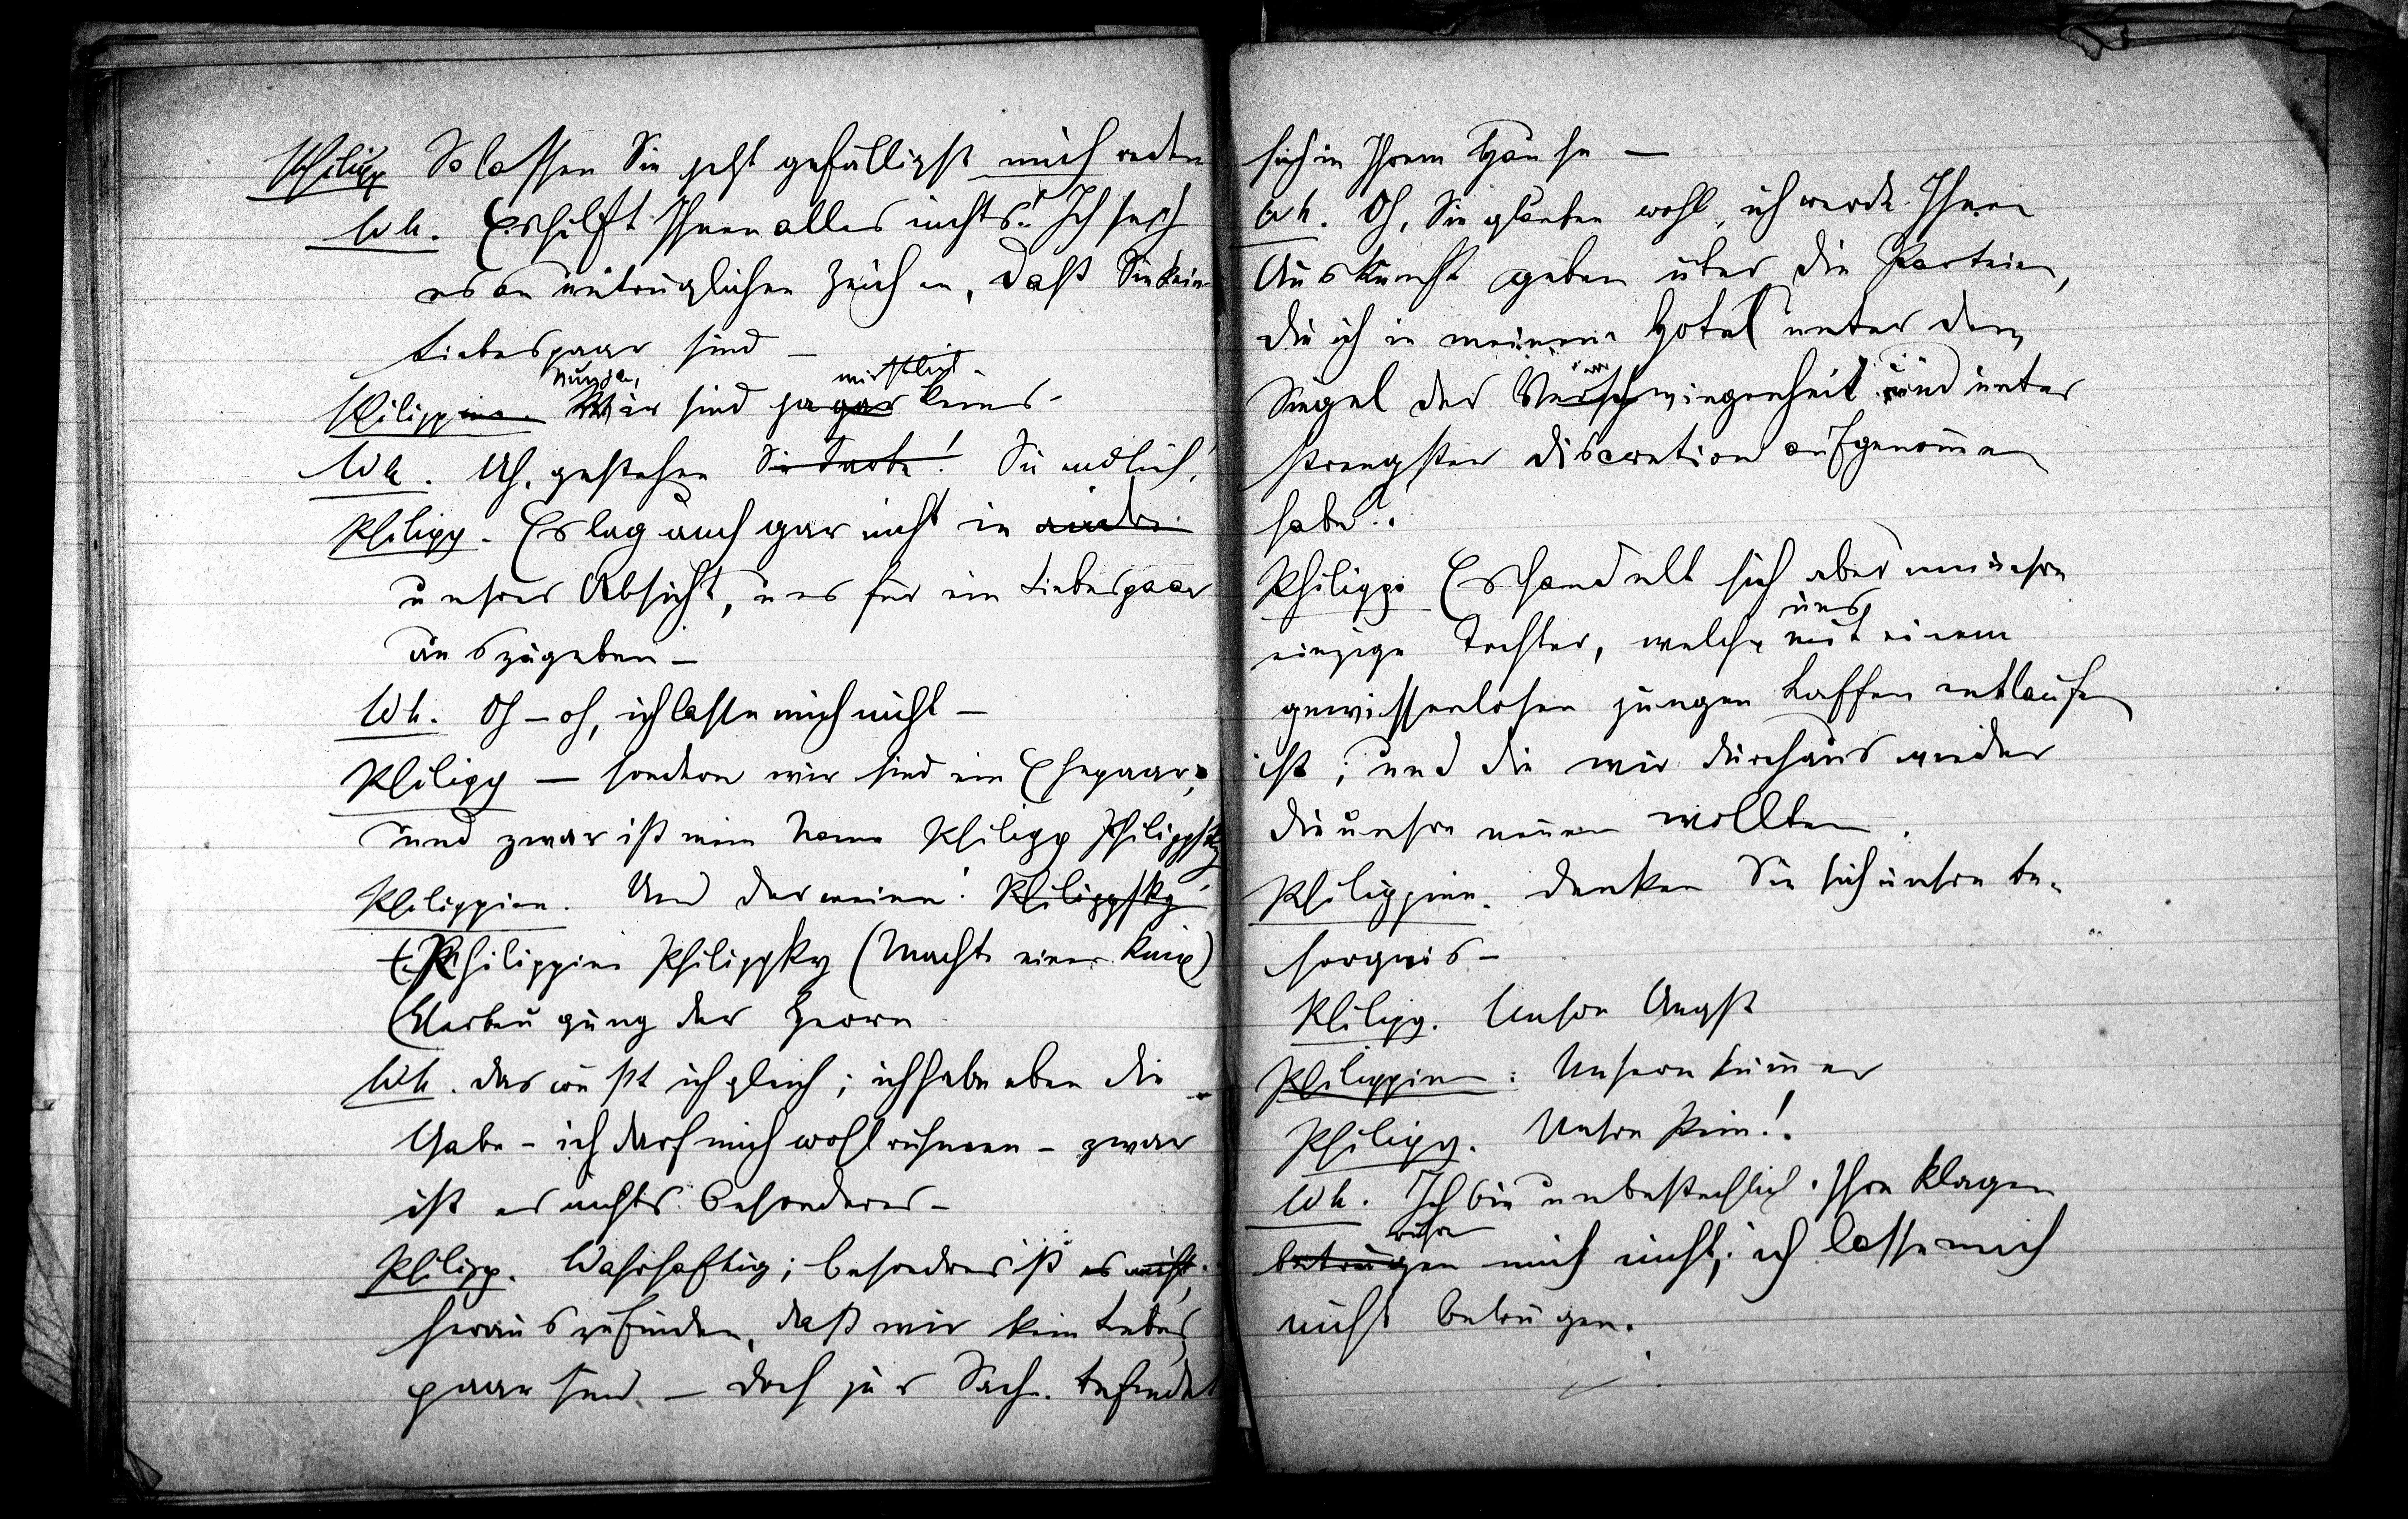 Philipp So lassen Sie jetzt gefälligst mich reden
Wh. Es hilft Ihnen alles nichts! Ich seh
es an untrüglichen Zeichen, daß Sie kein
Liebespaar sind –
Nun ja, wirklich
Philippine. Wir sind ja gar keins –
Wh. Ah, gestehen Sie endlich!
Philipp. Es lag auch gar nicht in
unsrer Absicht, uns für ein Liebespaar
auszugeben –
Wh. Oh – oh, ich lasse mich nicht –
Philipp – sondern wir sind ein Ehepaar,
und zwar ist mein Name Philipp Philippsky
Philippine. Und der meine: Philippsky
Philippine Philippsky (Macht einen Knix)
(Verbeugung der Herrn
Wh. Das wußt ich gleich; ich habe eben die
Gabe – ich darf mich wohl rühmen – zwar
ist es nichts Besonderes –
Philipp. Wahrhaftig; besondres ist es nicht,
herauszufinden, daß wir kein Liebes
paar sind – Doch zur Sache. Befindet
sich in Ihrem Hause –
Wh. Oh, Sie glauben wohl, ich werde Ihnen
Auskunft geben über die Parteien,
die ich in meinem Hotel unter dem
Siegel der Verschwiegenheit und unter
strengster Discretion aufgenommen
habe?
Philipp. Es handelt sich aber um unsre
uns
einzige Tochter, welche mit einem
gewissenlosen jungen Laffen entlaufen
ist; und die wir durchaus wieder
die unsre nennen wollten.
Philippine. Denken Sie sich unsre Be-
sorgnis –
Philipp. Unsre Angst
Philippine: Unsern Kummer
Philipp. Unsre Pein!
Wh. Ich bin unbestechlich. Ihre Klagen
rühren
betrügen mich nicht; ich lasse mich
nicht betrügen.